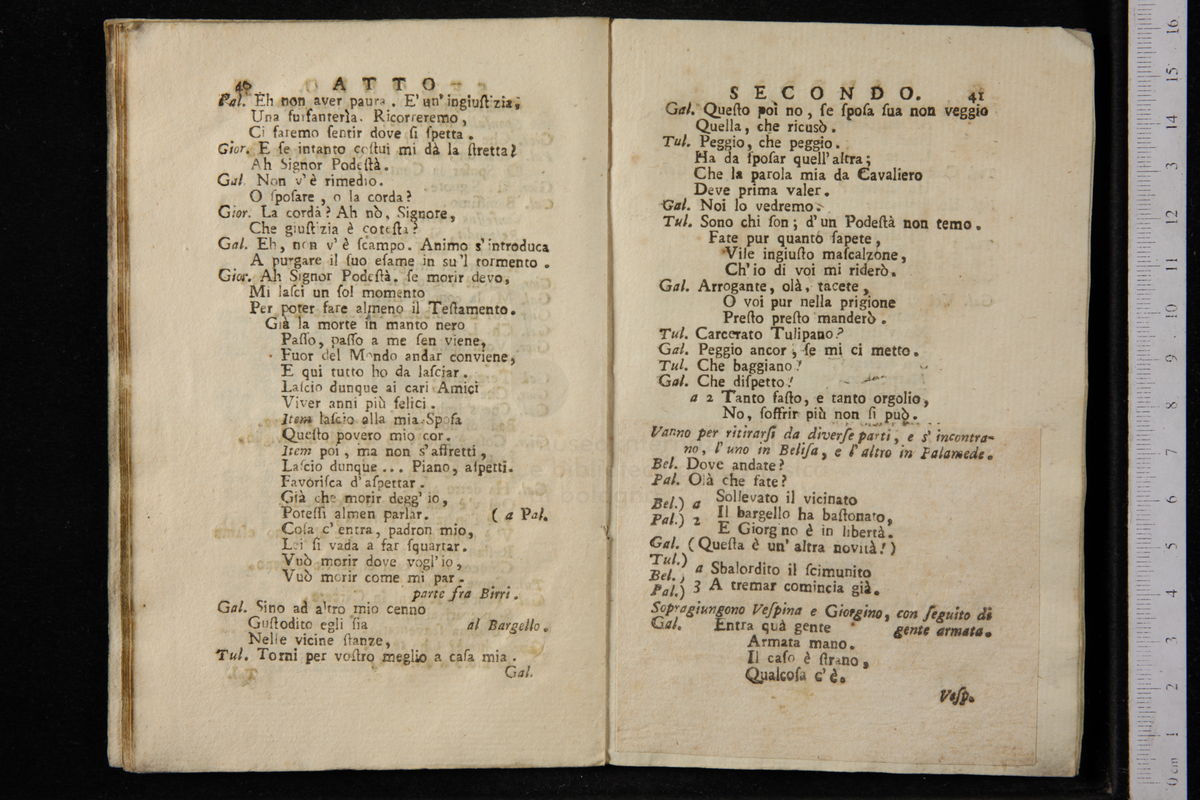 40 ATTO
Pal. Eh non aver paura. E' un' ingiuſtizia,
Una furfanterìa. Ricorreremo,
Ci faremo ſentir dove ſi ſpetta.
Gior. E ſe intanto coſtui mi dà la ſtretta?
Ah Signor Podeſtà.
Gal. Non v'è rimedio.
O ſpoſare, o la corda?
Gior. La corda? Ah nò, Signore,
Che giuſtizia è coteſta?
Gal. Eh, non v'è ſcampo. Animo s'introduca
A purgare il ſuo eſame in su'l tormento.
Gior. Ah Signor Podeſtà. ſe morir devo,
Mi laſci un ſol momento
Per poter fare almeno il Teſtamento.
Già la morte in manto nero
Paſſo, paſſo a me ſen viene,
Fuor del Mondo andar conviene,
E qui tutto ho da laſciar.
Laſcio dunque ai cari Amici
Viver anni più felici.
Item laſcio alla mia Spoſa
Queſto povero mio cor.
Item poi, ma non s'affretti,
Laſcio dunque... Piano, aſpetti.
Favoriſca d'aſpettar.
Già che morir degg' io,
Poteſſi almen parlar. (a Pal.
Coſa c'entra, padron mio,
Lei ſi vada a far ſquartar.
Vuò morir dove vogl'io,
Vuò morir come mi par.
parte fra Birri.
Gal. Sino ad altro mio cenno
Guſtodito egli ſia al Bargello.
Nelle vicine ſtanze,
Tul. Torni per voſtro meglio a caſa mia.
Gal.
SECONDO. 41
Gal. Queſto poi no, ſe ſpoſa ſua non veggio
Quella, che ricusò.
Tul. Peggio, che peggio.
Ha da ſpoſar quell'altra;
Che la parola mia da Cavaliero
Deve prima valer.
Gal. Noi lo vedremo.
Tul. Sono chi ſon; d'un Podeſtà non temo.
Fate pur quanto ſapete,
Vile ingiuſto maſcalzone,
Ch'io di voi mi riderò.
Gal. Arrogante, olà, tacete,
O voi pur nella prigione
Preſto preſto manderò.
Tul. Carcerato Tulipano?
Gal. Peggio ancor, ſe mi ci metto.
Tul. Che baggiano!
Gal. Che diſpetto!
a 2 Tanto faſto, e tanto orgolio,
No, ſoffrir più non ſi può.
Vanno per ritirarſi da diverſe parti, e s'incontra-
no, l'uno in Beliſa, e l'altro in Palamede.
Bel. Dove andate?
Pal. Olà che fate?
Bel.) a Sollevato il vicinato
Pal.) 2 Il bargello ha baſtonato,
E Giorgino è in libertà.
Gal. (Queſta è un'altra novità!)
Tul.)
Bel.) a Sbalordito il ſcimunito
Pal.) 3 A tremar comincia già.
Sopragiungono Veſpina e Giorgino, con ſeguito di
Gal. Entra quà gente gente armata.
Armata mano.
Il caſo è ſtrano,
Qualcoſa c'è.
Veſp.